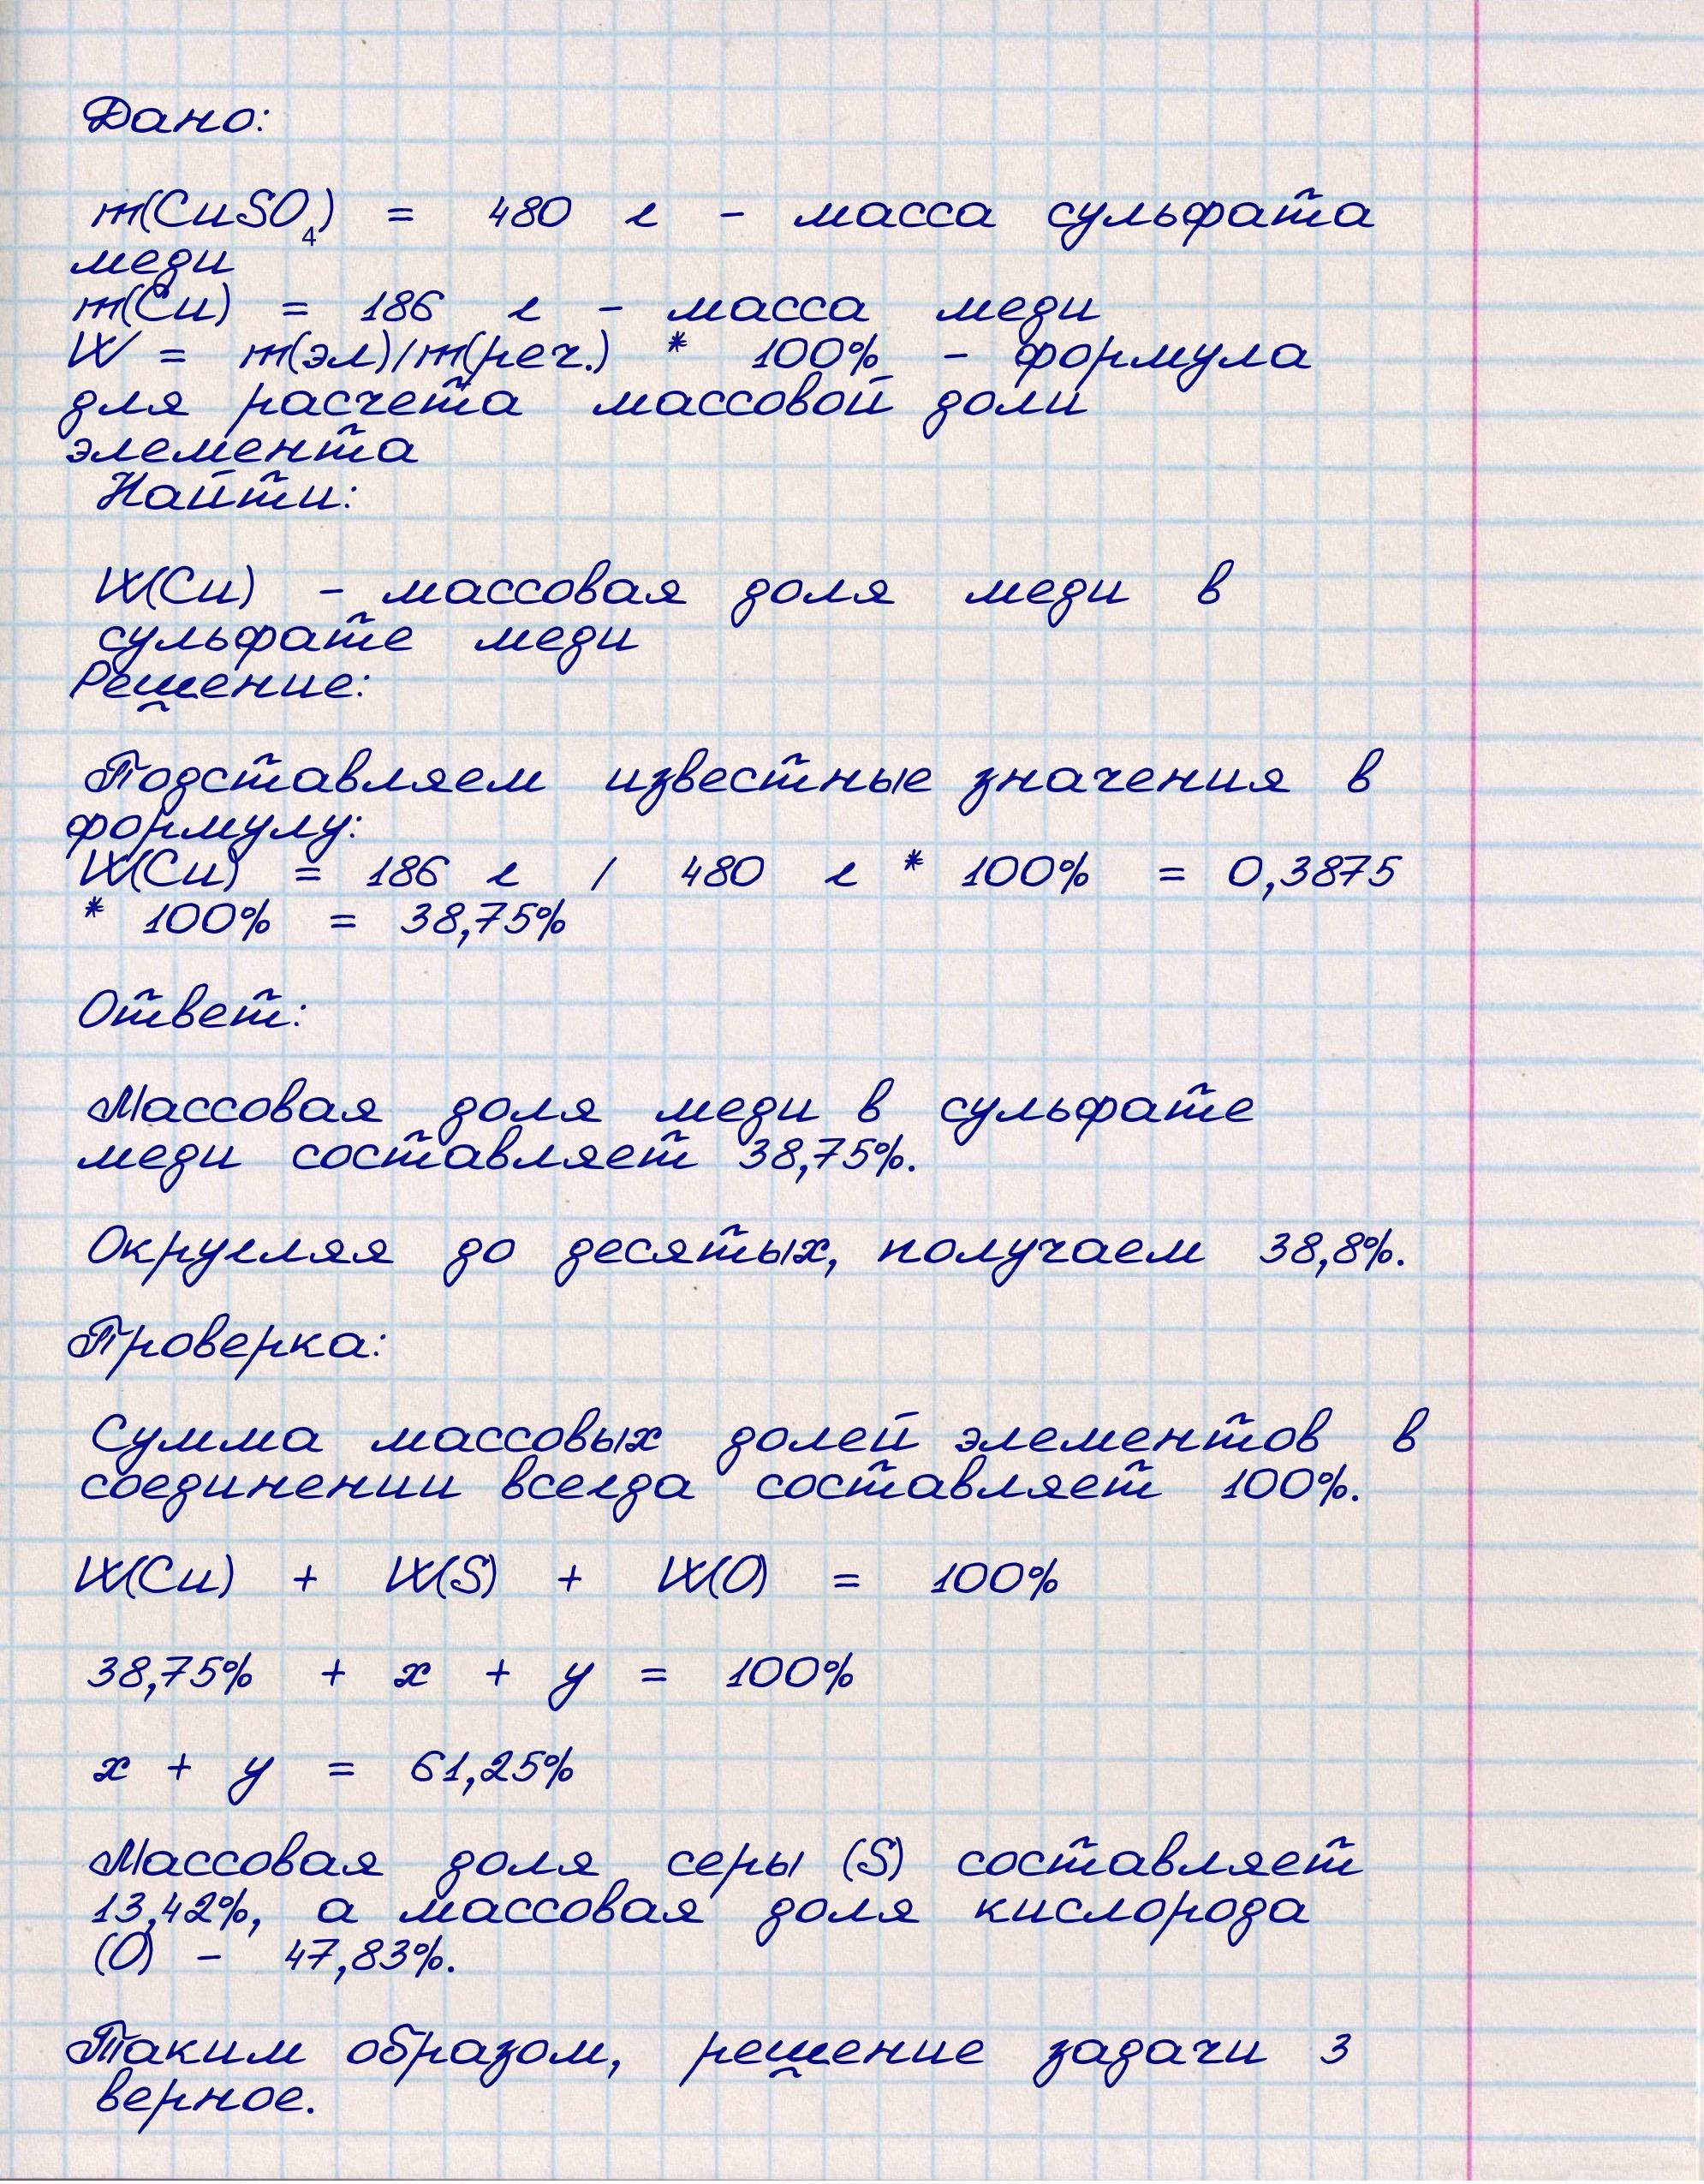 Дано:
m(CuSO₄) = 480 г - масса сульфата
меди
m(Cu) = 186 г - масса меди
W = m(эл)/m(реч.) * 100% - формула
для расчета массовой доли
элемента
Найти:
W(Cu) - массовая доля меди в
сульфате меди
Решение:
Подставляем известные значения в
формулу:
W(Cu) = 186 г / 480 г * 100% = 0,3875
* 100% = 38,75%
Ответ:
Массовая доля меди в сульфате
меди составляет 38,75%.
Округляя до десятых, получаем 38,8%.
Проверка:
Сумма массовых долей элементов в
соединении всегда составляет 100%.
W(Cu) + W(S) + W(O) = 100%
38,75% + x + y = 100%
x + y = 61,25%
Массовая доля серы (S) составляет
13,42%, а массовая доля кислорода
(O) - 47,83%.
Таким образом, решение задачи 3
верное.